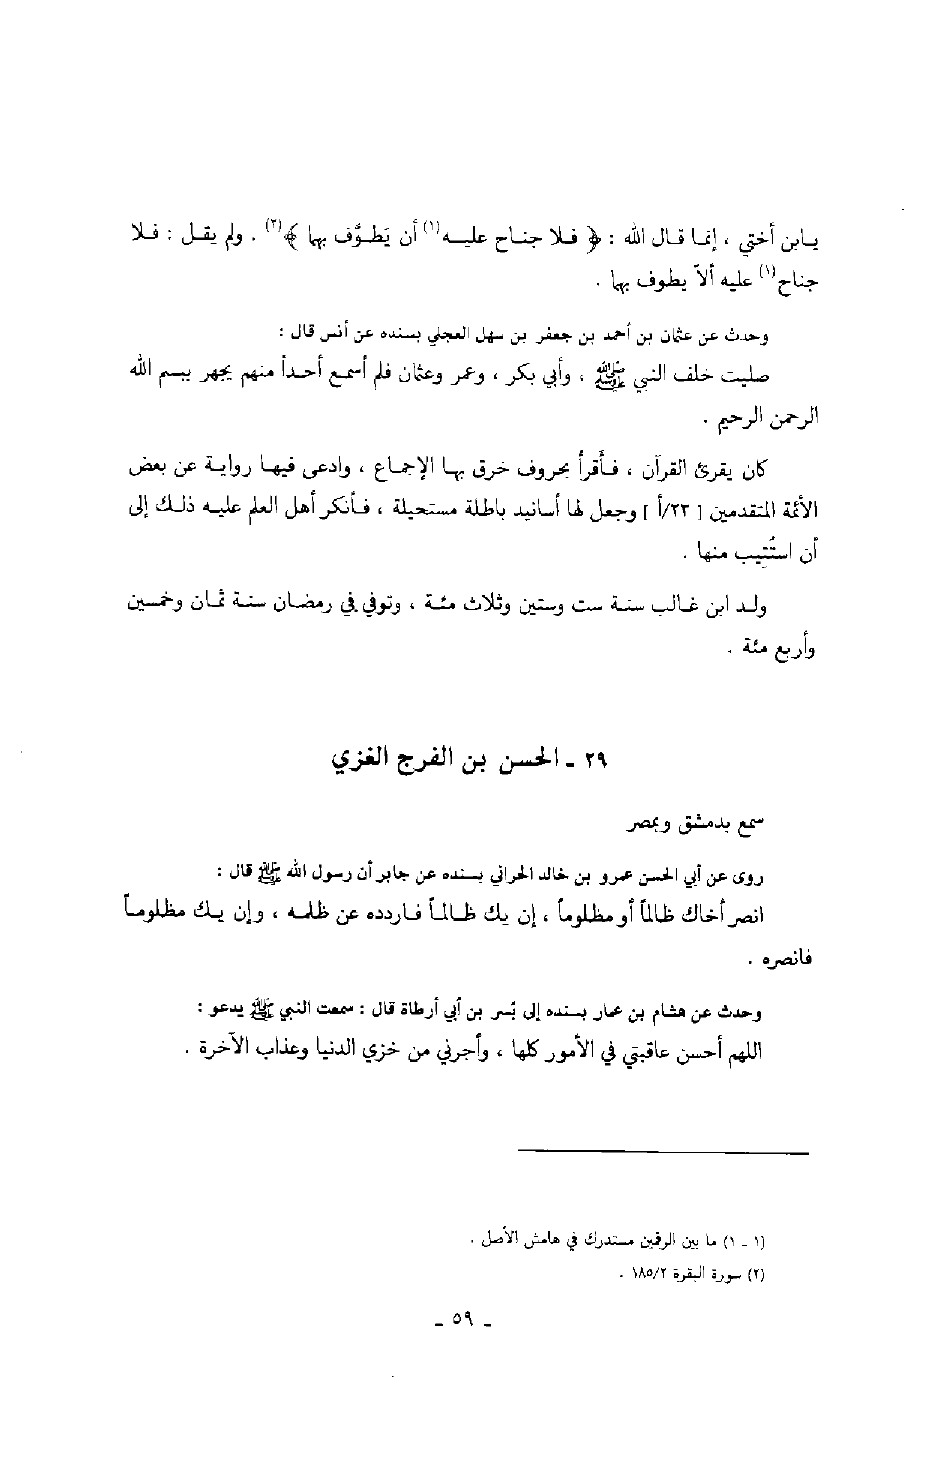 يابن أختي ، إنما قال الله : ﴿ فلا جناح عليه(١) أن يَطوَّف بها ﴾(٢) . ولم يقل : فلا
جناح(١) عليه ألاّ يطوف بها .
وحدث عن عثمان بن أحمد بن جعفر بن سهل العجلي بسنده عن أنس قال :
صليت خلف النبي ﷺ ، وأبي بكر ، وعمر وعثمان فلم أسمع أحداً منهم يجهر ببسم الله
الرحمن الرحيم .
كان يقرئ القرآن ، فأقرأ بحروف خرق بها الإجماع ، وادعى فيها رواية عن بعض
الأئمة المتقدمين [ ٢٣/أ ] وجعل لها أسانيد باطلة مستحيلة ، فأنكر أهل العلم عليه ذلك إلى
أن استُتِيب منها .
ولد ابن غالب سنة ست وستين وثلاث مئة ، وتوفي في رمضان سنة ثمان وخمسين
وأربع مئة .
٢٩ ـ الحسن بن الفرج الغزي
سمع بدمشق وبمصر
روى عن أبي الحسن عمرو بن خالد الحراني بسنده عن جابر أن رسول الله ﷺ قال :
انصر أخاك ظالماً أو مظلوماً ، إن يك ظالماً فاردده عن ظلمه ، وإن يك مظلوماً
فانصره .
وحدث عن هشام بن عمار بسنده إلى بُسر بن أبي أرطاة قال : سمعت النبي ﷺ يدعو :
اللهم أحسن عاقبتي في الأمور كلها ، وأجرني من خزي الدنيا وعذاب الآخرة .
(١ ـ ١) ما بين الرقمين مستدرك في هامش الأصل .
(٢) سورة البقرة ١٨٥/٢ .
ـ ٥٩ ـ